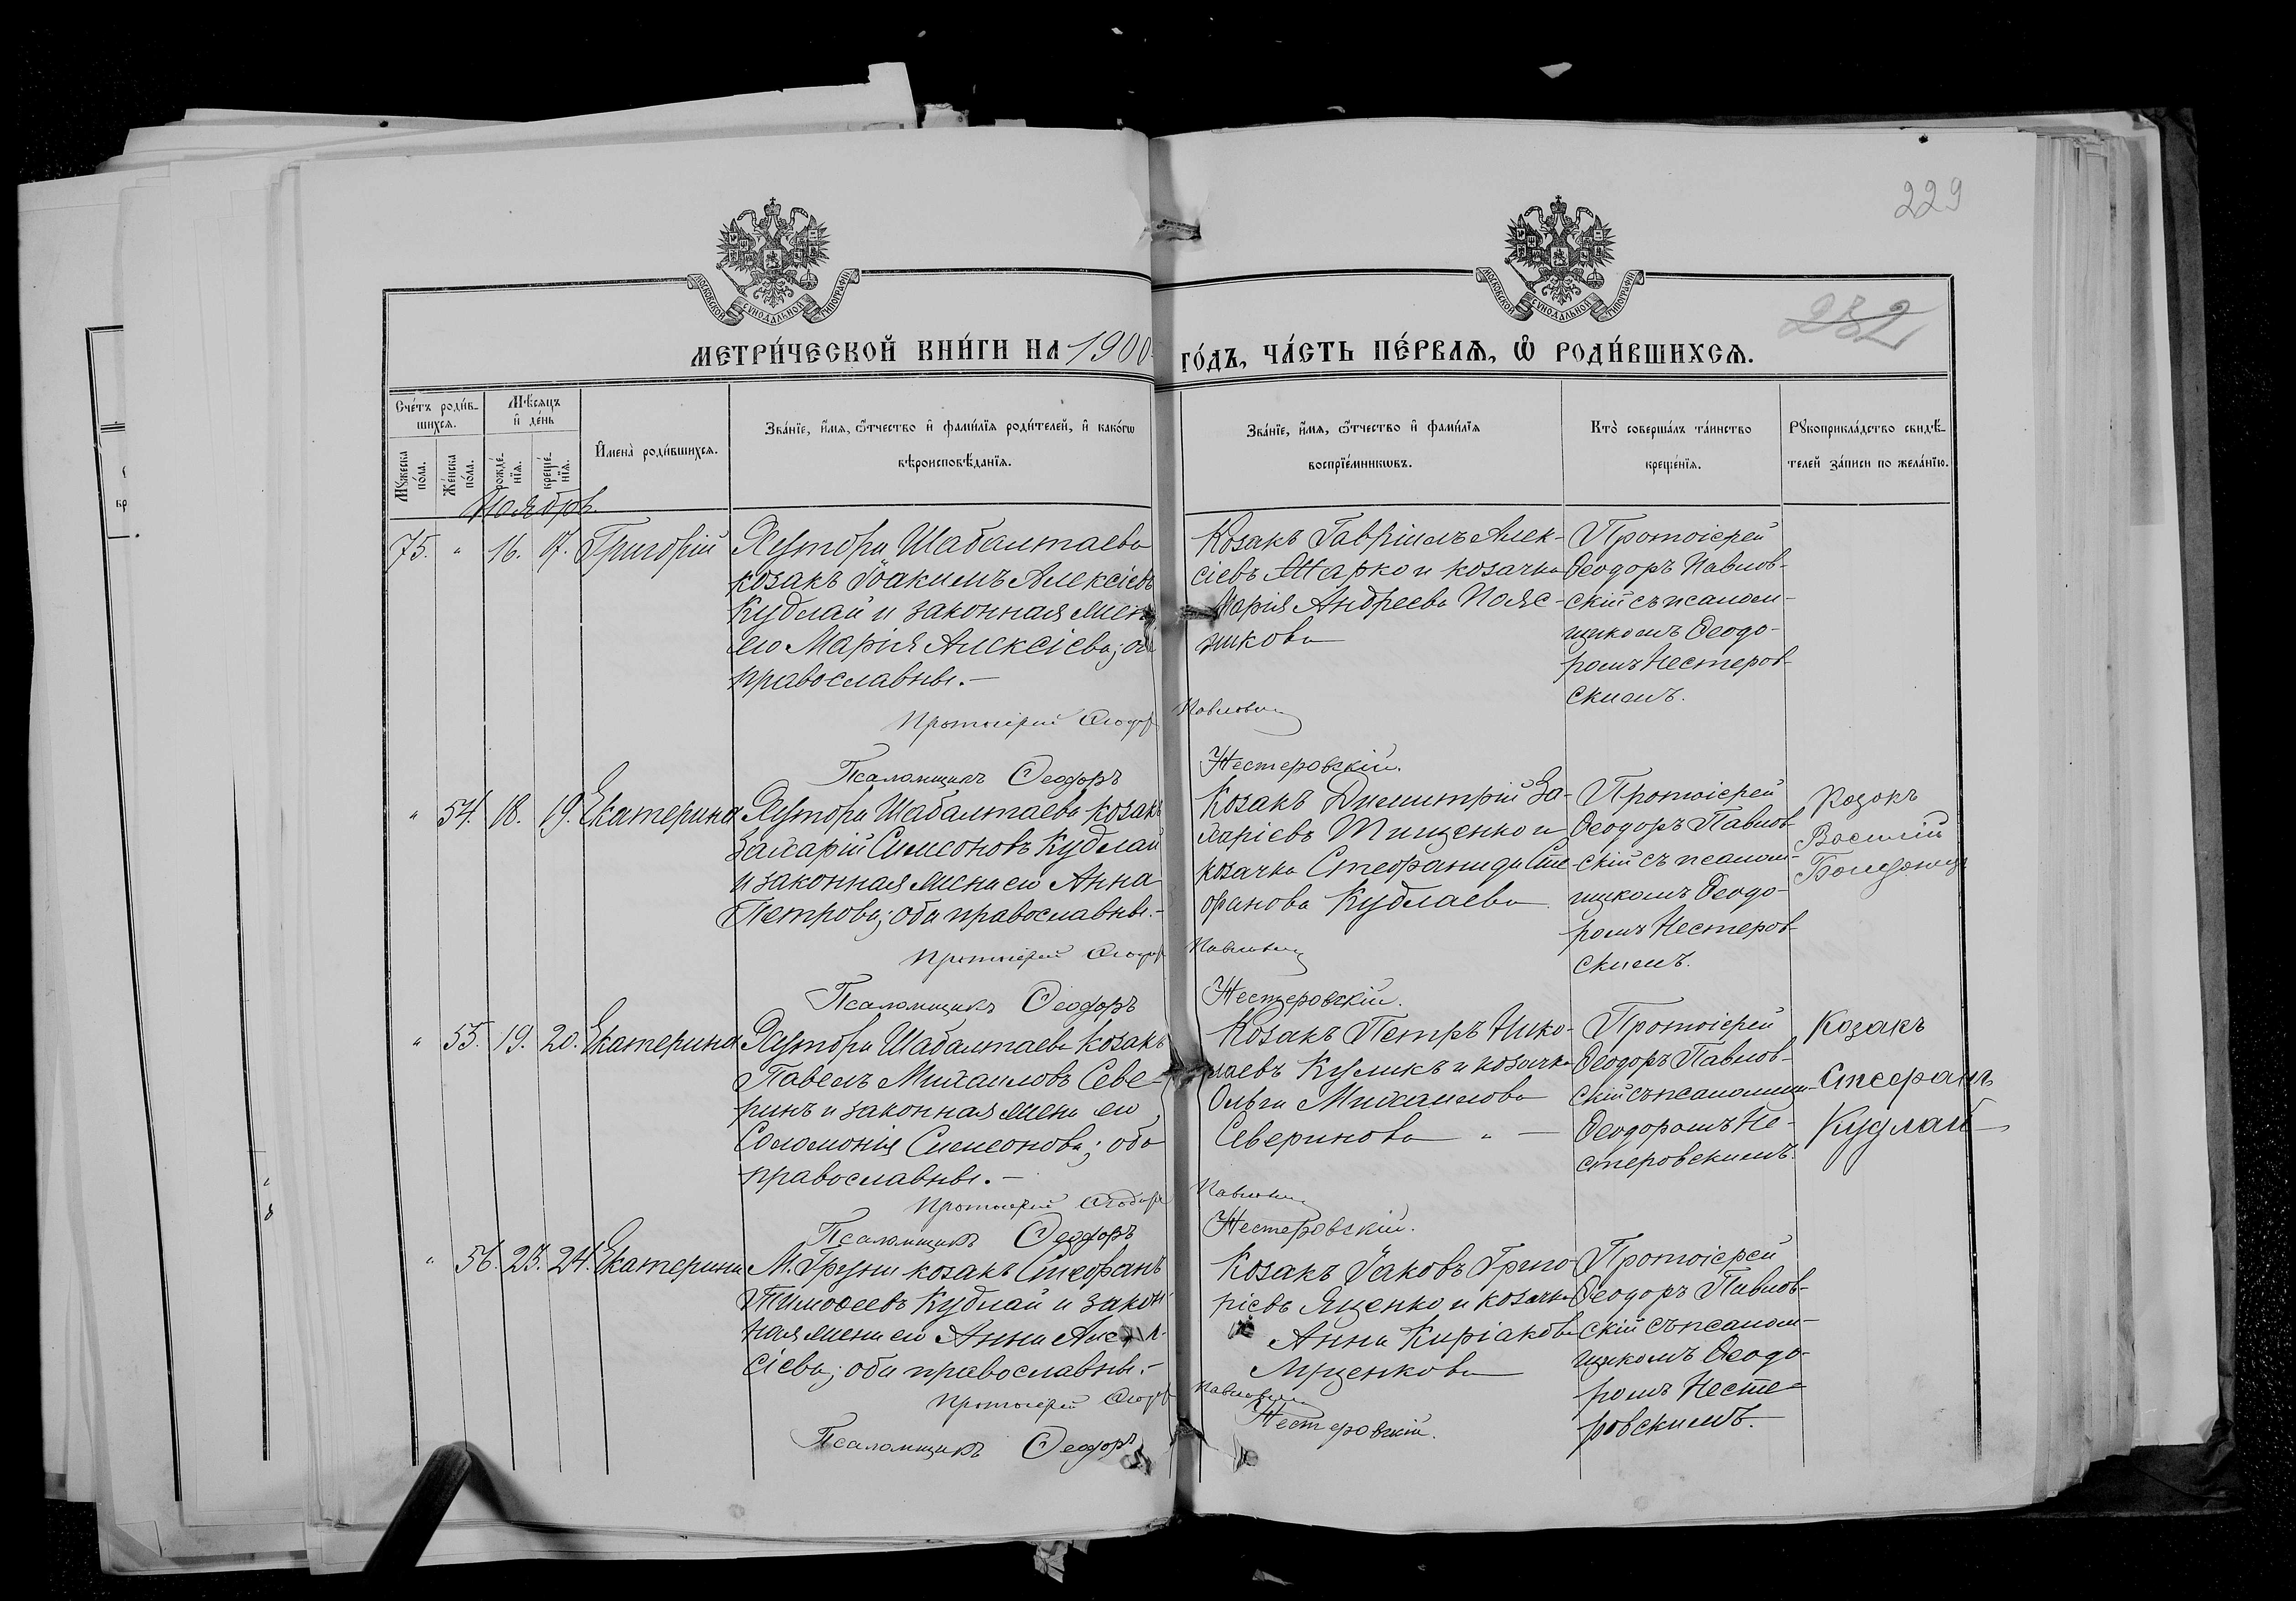 229
232
МОСКОВСКОЙ СѴНОДАЛЬНОЙ ТИПОГРАФІИ
МОСКОВСКОЙ СѴНОДАЛЬНОЙ ТИПОГРАФІИ
МЕТРИ́ЧЕСКОЙ КНИ́ГИ НА 1900
ГО́ДЪ, ЧА́СТЬ ПЕ́РВАѦ, Ѽ РОДИ́ВШИХСѦ.
Сче́тъ роди́в-
шихсѧ.
Мꙋ́жеска
по́ла.
Же́нска
по́ла.
Мѣ́сѧцъ
и҆ де́нь
рожде́-
нїѧ.
креще́-
нїѧ.
И҆мена̀ роди́вшихсѧ.
Зва́нїе, и҆́мѧ, ѻ҆́тчество и҆ фами́лїѧ роди́телей, и҆ како́гѡ
вѣроисповѣ́данїѧ.
Зва́нїе, и҆́мѧ, ѻ҆́тчество и҆ фами́лїѧ
воспрїе́мникѡвъ.
Кто̀ соверша́лъ та́инство
креще́нїѧ.
Рꙋкоприкла́дство свидѣ́-
телей за́писи по жела́нїю.
Ноябрь.
75. " 16. 17. Григорій
Хутора Шабалтаева
козакъ Іоакимъ Алексіевъ
Кудлай и законная жена
его Марія Алексіева; оба
православные.-
Козакъ Гавріилъ Алек-
сіевъ Жарко и козачка
Марія Андреева Пояс-
никова
Протоіерей
Ѳеодоръ Павлов-
скій съ псалом-
щикомъ Ѳеодо-
ромъ Нестеров-
скимъ.
Протоіерей Ѳеодоръ Павловскій
Псаломщикъ Ѳеодоръ Нестеровскій.
" 54. 18. 19. Екатерина
Хутора Шабалтаева козакъ
Захарій Симеоновъ Кудлай
и законная жена его Анна
Петрова; оба православные.-
Козакъ Димитрій За-
харіевъ Тищенко и
козачка Стефанида Сте
фанова Кудлаева
Протоіерей
Ѳеодоръ Павлов
скій съ псалом-
щикомъ Ѳеодо-
ромъ Нестеров-
скимъ.
Козакъ
Василій
Протоіерей Ѳеодоръ Павловскій
Псаломщикъ Ѳеодоръ Нестеровскій.
" 55. 19. 20. Екатерина
Хутора Шабалтаева козакъ
Павелъ Михаиловъ Севе-
ринъ и законная жена его
Соломонія Симеонова; оба
православные.-
Козакъ Петръ Нико-
лаевъ Куликъ и козачка
Ольга Михаилова
Северинова " -
Протоіерей
Ѳеодоръ Павлов-
скій съ псаломщи-
Ѳеодоромъ Не-
стеровскимъ.
Козакъ
Стефанъ
Кудлай
Протоіерей Ѳеодоръ Павловскій
Псаломщикъ Ѳеодоръ Нестеровскій.
" 56. 23. 24. Екатерина
М. Груни козакъ Стефанъ
Тимоѳеевъ Кудлай и закон
ная жена его Анна Алек-
сіева; оба православные.-
Козакъ Іаковъ Григо
ріевъ Яценко и козачка
Анна Киріакова
Протоіерей
Ѳеодоръ Павлов-
скій съ псалом-
щикомъ Ѳеодо-
ромъ Несте-
ровскимъ.
Протоіерей Ѳеодоръ Павловскій
Псаломщикъ Ѳеодоръ Нестеровскій.